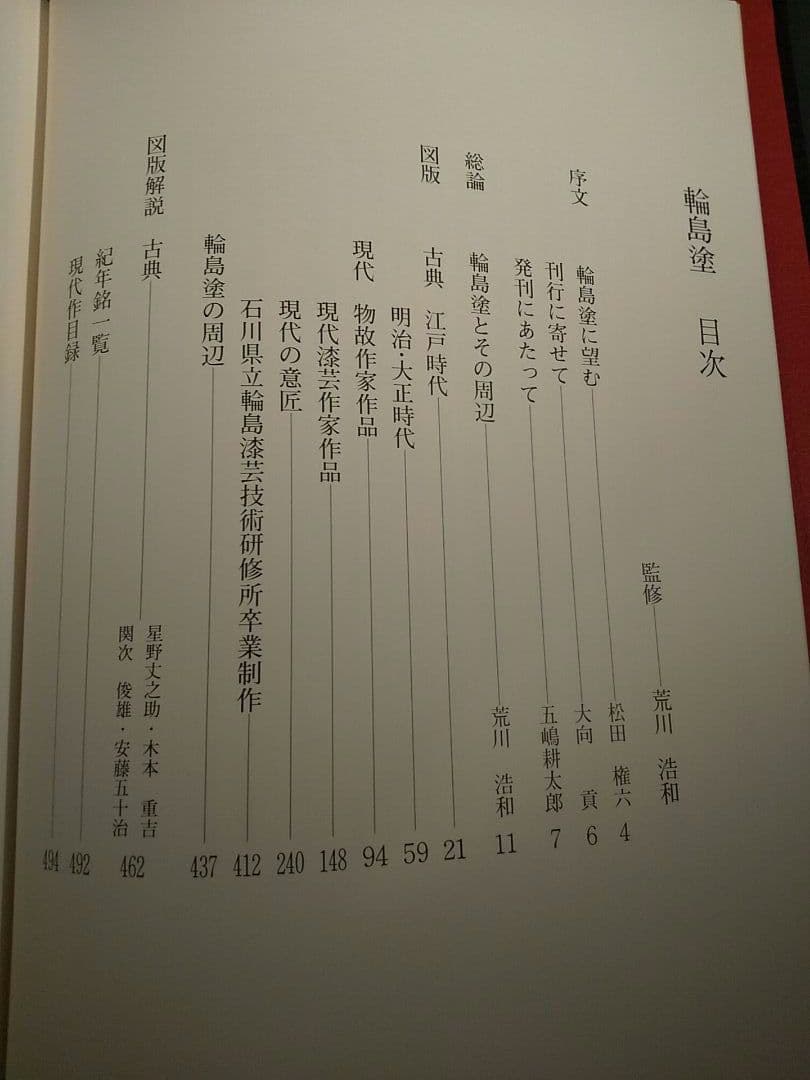 輪島塗 目次
監修 荒川 浩和
序文 輪島塗に望む 松田 権六 4
刊行に寄せて 大向 貢 6
発刊にあたって 五嶋耕太郎 7
総論 輪島塗とその周辺 荒川 浩和 11
図版 古典 江戸時代 21
明治・大正時代 59
現代 物故作家作品 94
現代漆芸作家作品 148
現代の意匠 240
石川県立輪島漆芸技術研修所卒業制作 412
輪島塗の周辺 437
図版解説 古典 星野丈之助・木本 重吉
関次 俊雄・安藤五十治 462
紀年銘一覧 492
現代作目録 494